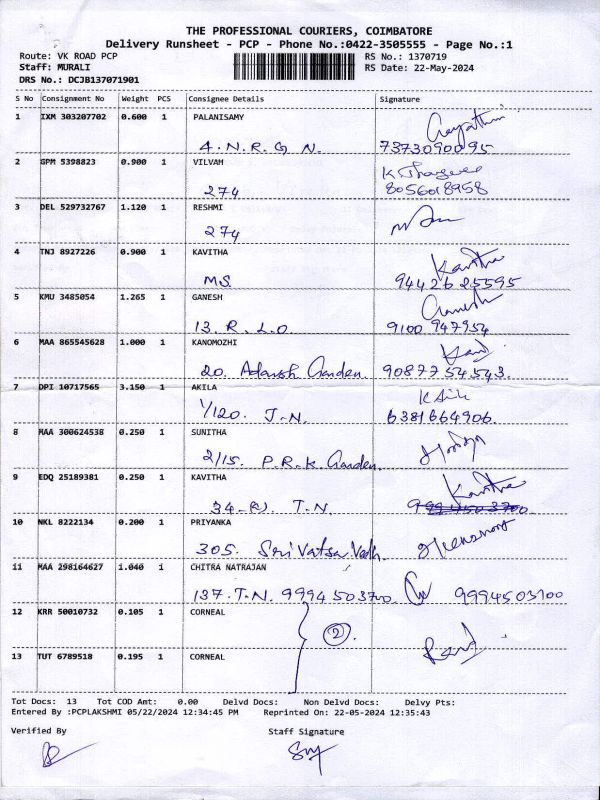 THE PROFESSIONAL COURIERS, COIMBATORE
Delivery Runsheet - PCP - Phone No.:0422-3505555 - Page No.:1
Route: VK ROAD PCP RS No.: 1370719
Staff: MURALI RS Date: 22-May-2024
DRS No.: DCJB137071901
S No Consignment No Weight PCS Consignee Details Signature
1 IXM 303207702 0.600 1 PALANISAMY Gayathri
4. N. R. G N. 7373090095
2 GPM 5398823 0.900 1 VILVAM
274 8056018958
3 DEL 529732767 1.120 1 RESHMI
274
4 TNJ 8927226 0.900 1 KAVITHA Kavitha
MS. 94426 25595
5 KMU 3485054 1.265 1 GANESH Ganesh
13. R. L. O. 9100 947954
6 MAA 865545628 1.000 1 KANOMOZHI
20. Adarsh Garden. 9087754543.
7 DPI 10717565 3.150 1 AKILA
1/120. J.N. 6381664906.
8 MAA 300624538 0.250 1 SUNITHA
2/15. P.R.K. Garden.
9 EDQ 25189381 0.250 1 KAVITHA Kavitha
34- T.N.
10 NKL 8222134 0.200 1 PRIYANKA
305. Sri Vatsa
11 MAA 298164627 1.040 1 CHITRA NATRAJAN
137. T.N. 9994503700. 9994503700
12 KRR 50010732 0.105 1 CORNEAL
2
13 TUT 6789518 0.195 1 CORNEAL
Tot Docs: 13 Tot COD Amt: 0.00 Delvd Docs: Non Delvd Docs: Delvy Pts:
Entered By :PCPLAKSHMI 05/22/2024 12:34:45 PM Reprinted On: 22-05-2024 12:35:43
Verified By Staff Signature